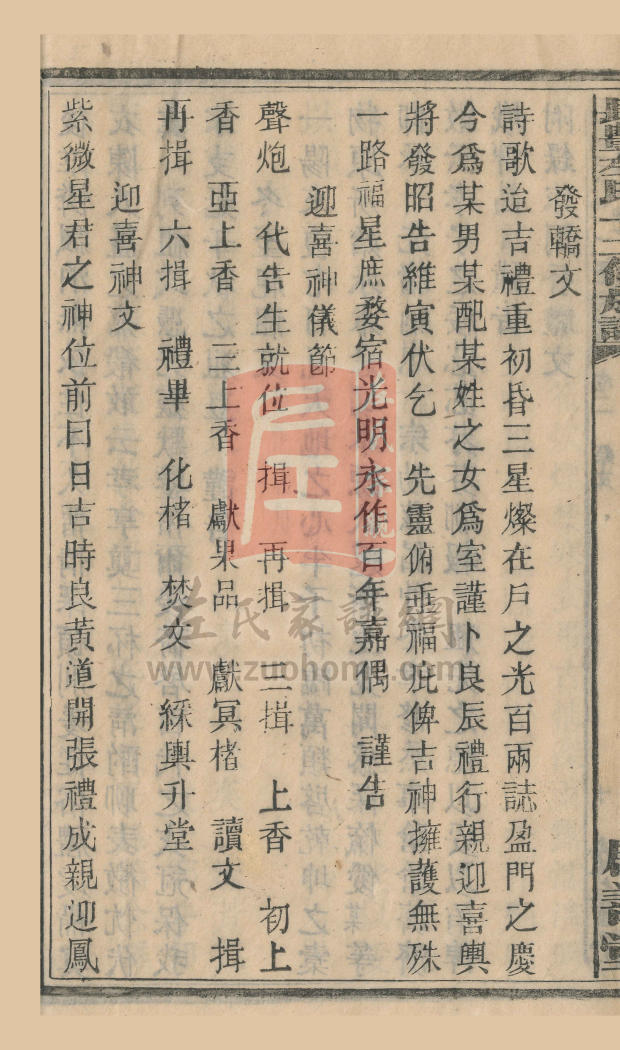 發轎文
詩歌迨吉禮重初昏三星燦在戶之光百兩誌盈門之慶
今爲某男某配某姓之女爲室謹卜良辰禮行親迎喜輿
將發昭告維寅伏乞 先靈俯垂福庇俾吉神擁護無殊
一路福星庶婺宿光明永作百年嘉偶 謹告
迎喜神儀節
聲炮 代告生就位 揖 再揖 三揖 上香 初上
香 亞上香 三上香 獻果品 獻冥楮 讀文 揖
再揖 六揖 禮畢 化楮 焚文 綵輿升堂
迎喜神文
紫微星君之神位前曰日吉時良黃道開張禮成親迎鳳
左氏家譜網
www.zuohome.com